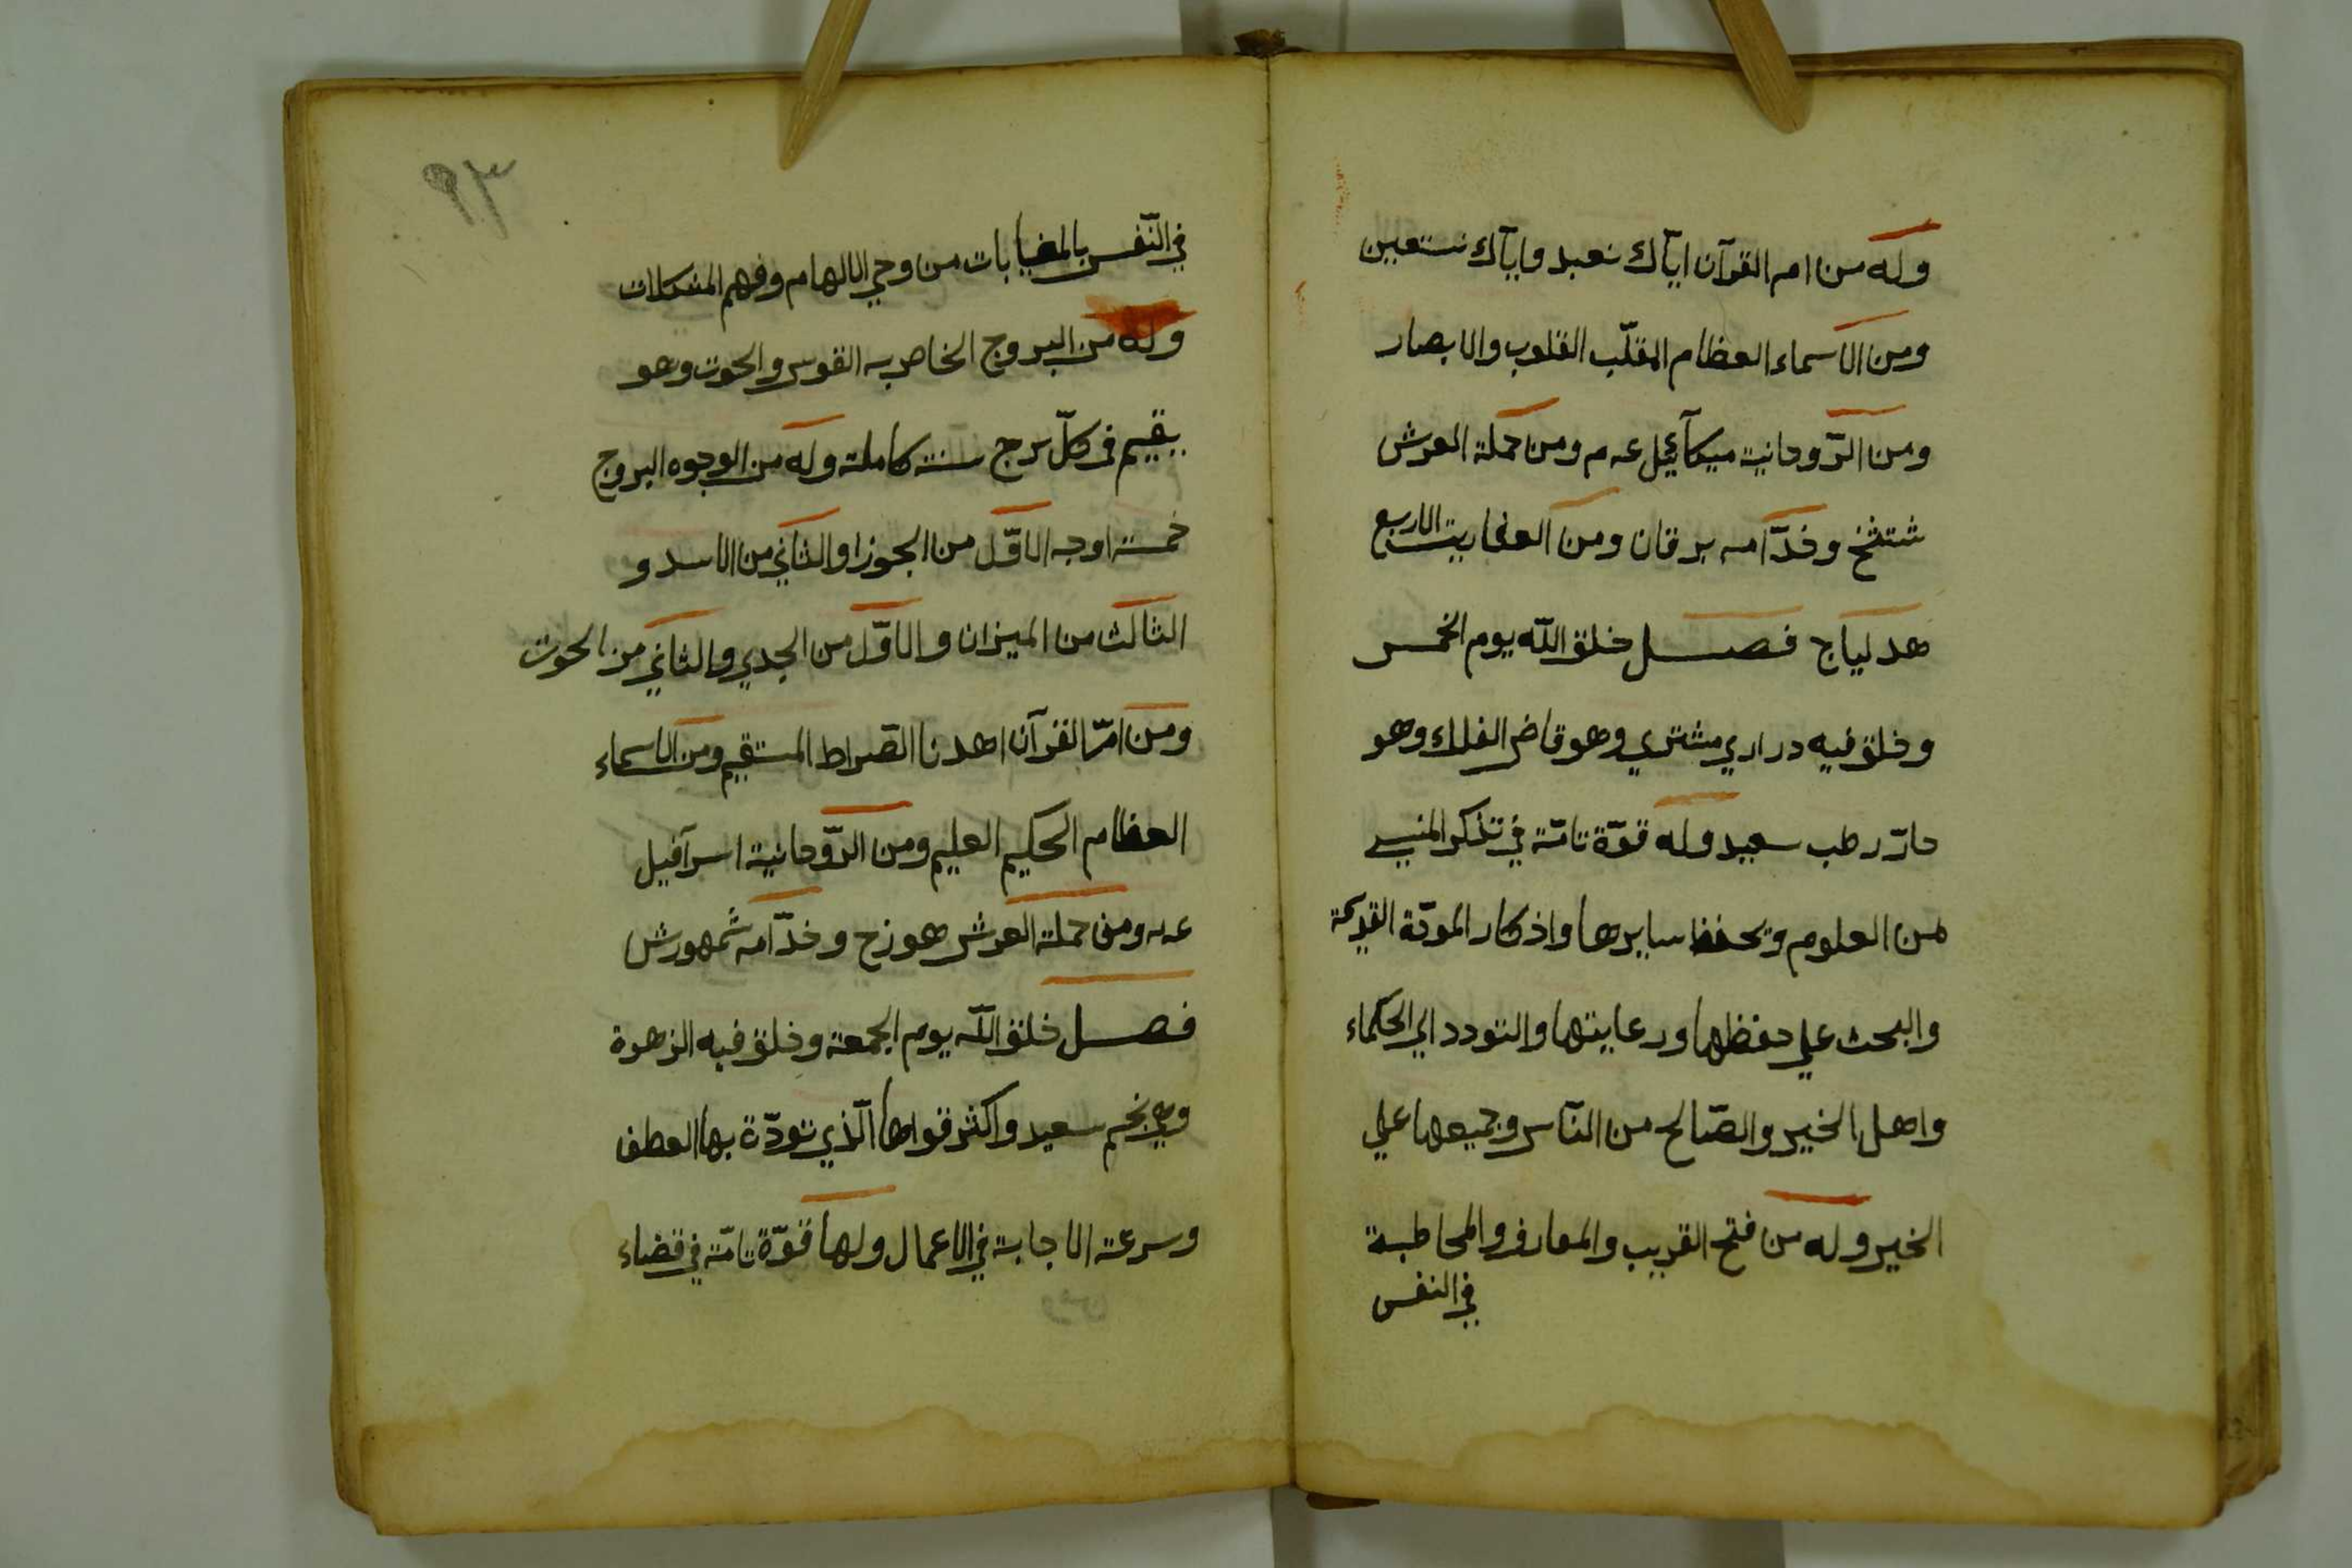 وله من ام القرآن ايّاك نعبد وايّاك نستعين
ومن الاسماء العظام المقلّب القلوب والابصار
ومن الرّوحانية ميكآئيل عـم ومن حملة العرش
شتثخ وخدّامه برقان ومن العفاريت الاربع
هدلياج فصل خلق اللّه يوم الخمس
وخلق فيه دراري مشتري وهو قاض الفلك وهو
حارّ رطب سعيد وله قوّة تامّة في تذكر المنسي
لمن العلوم ويحفظ سايرها واذكار المودّة القديمة
والبحث علي حفظها ورعايتها والتودد الي الحكماء
واهل الخير والصّالح من النّاس وجميعها علي
الخير وله من فتح القريب والمعارف والمخاطبة
في النفس
٩٣
في النّفس بالمغيابات من وحي الالهام وفهم المشكلات
وله من البروج الخاص به القوس والحوت وهو
يقيم في كلّ برج سنة كاملة وله من الوجوه البروج
خمسة اوجه الاوّل من الجوزا والثاني من الاسد و
الثالث من الميزان والاوّل من الجدي والثاني من الحوت
ومن امّ القرآن اهدنا الصّراط المستقيم ومن الاسماء
العظام الحكيم العليم ومن الرّوحانية اسرآفيل
عـه ومن حملة العرش هوزح وخدّامه شمهورش
فصل خلق اللّه يوم الجمعة وخلق فيه الزهرة
وهي نجم سعيد واكثر قواها الّذي تودّة بها العطف
وسرعة الاجابة في الاعمال ولها قوّة تامّة في قضاء